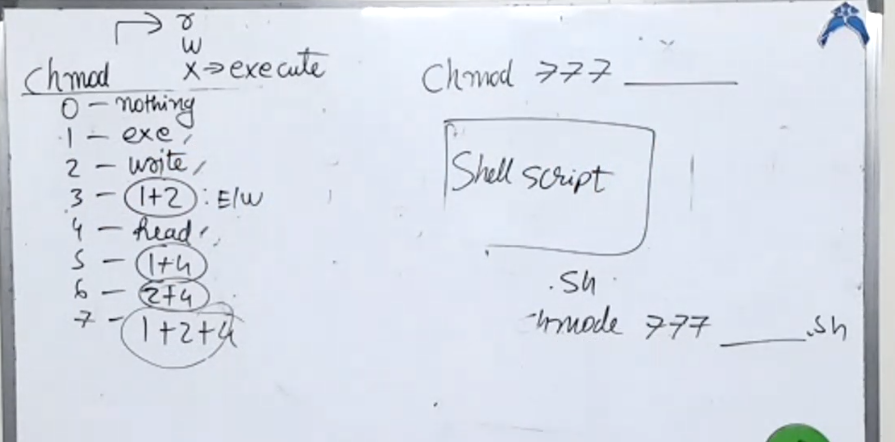 r
w
Chmod x → execute
0 – nothing
1 – exe
2 – write
3 – 1+2 : E/W
4 – Read
5 – 1+4
6 – 2+4
7 – 1+2+4
Chmod 777 ______
Shell script
.Sh
777 ______.Sh